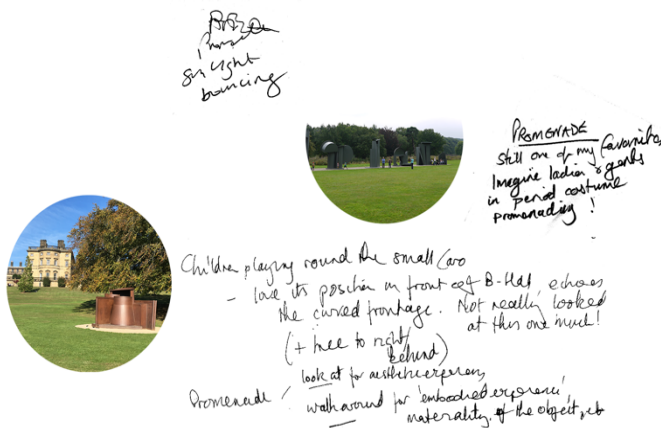 sunlight
bouncing
PROMENADE
still one of my favourites,
Imagine ladies & gents
in period costume
promenading!
Children playing round the small Caro
- love its position in front of B-Hall, echoes
the curved frontage. Not really looked
at this one much!
(+ tree to right/
behind)
look at for aesthetic experience,
Promenade:
walk around for 'embodied experience',
materiality of the object, etc